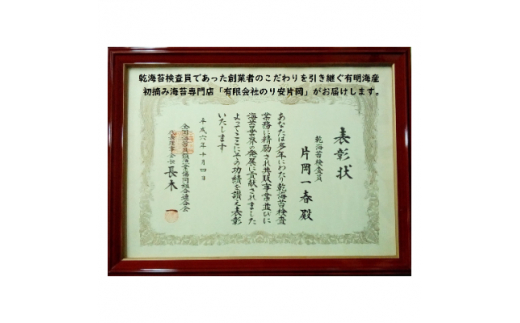 乾海苔検査員であった創業者のこだわりを引き継ぐ有明海産
初摘み海苔専門店「有限会社のり安片岡」がお届けします。
表彰状
乾海苔検査員
片岡一春殿
あなたは多年にわたり乾海苔検査
業務に精励され共販事業並びに
海苔世界の発展に貢献されました
よってここにその功績を讃え表彰
いたします
平成六年十月四日
全国海苔貝類漁業協同組合連合会